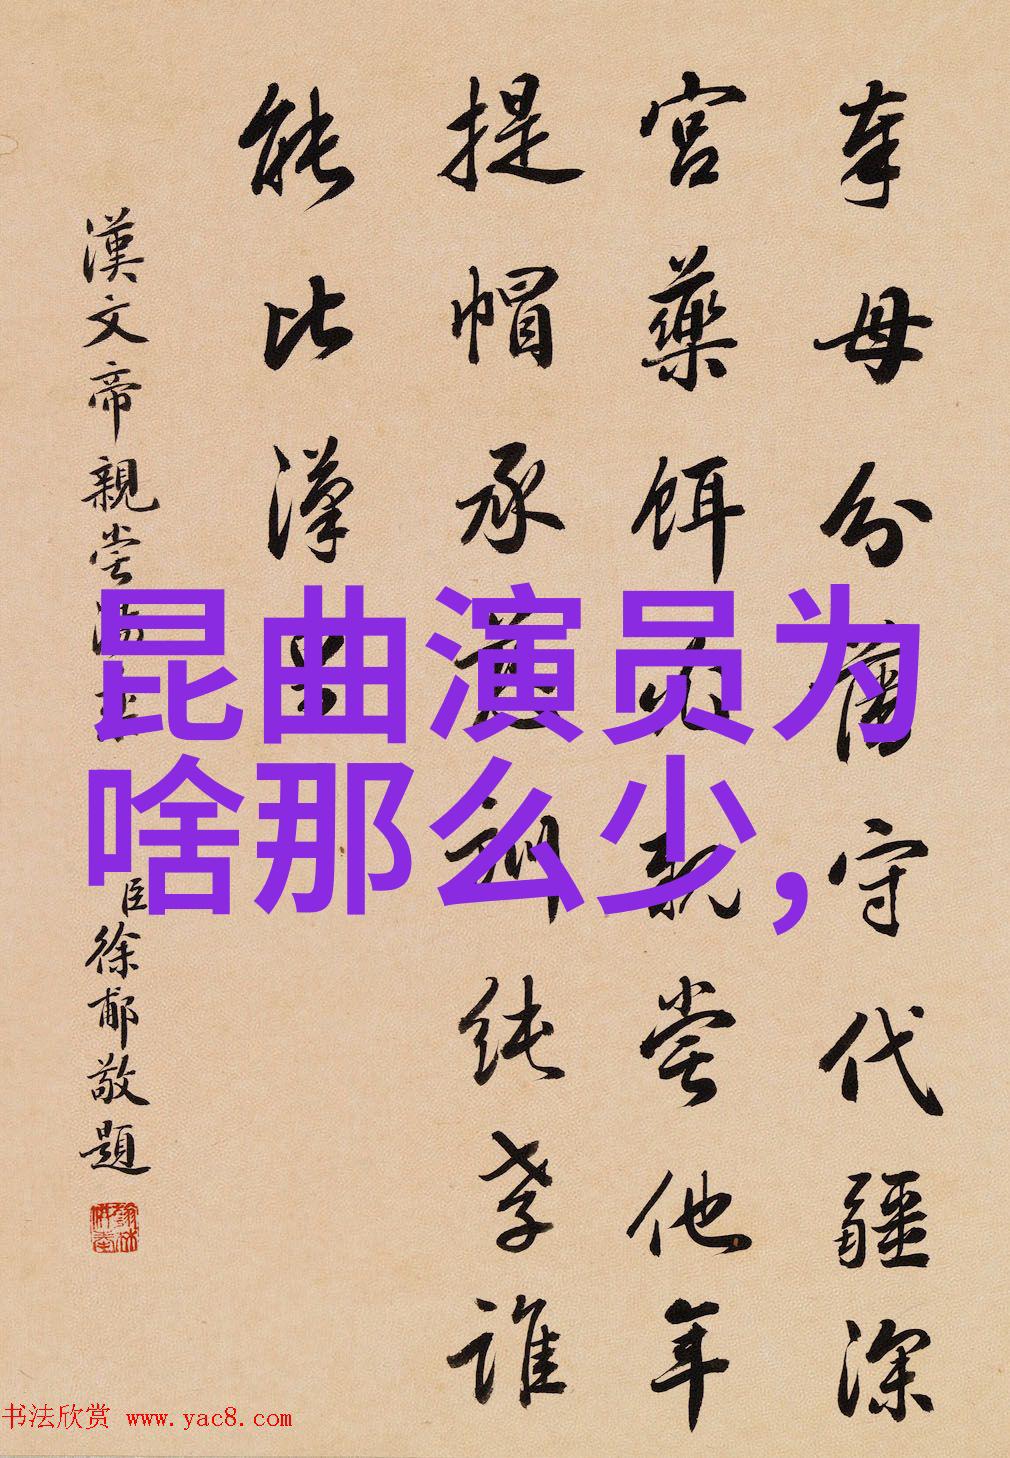 奉母分藩守代疆深
宫藥餌必親嘗他年
提帽承慈訓純孝誰
能比漢
漢文帝親嘗湯藥
臣徐郙敬題
昆曲演员为
啥那么少,
书法欣赏 www.yac8.com